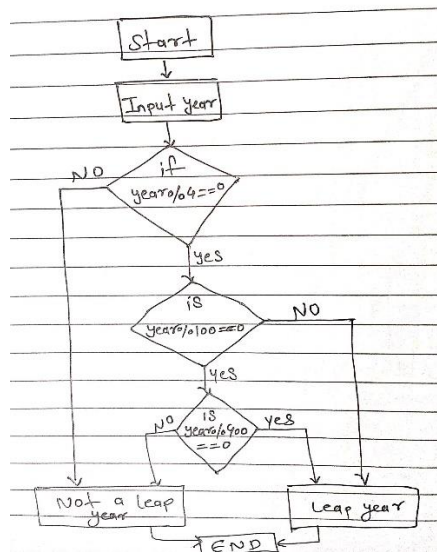 Start
Input year
if
NO
year%4==0
yes
is
NO
year%100==0
yes
NO
is
yes
year%400
==0
Not a leap
year
Leap year
END